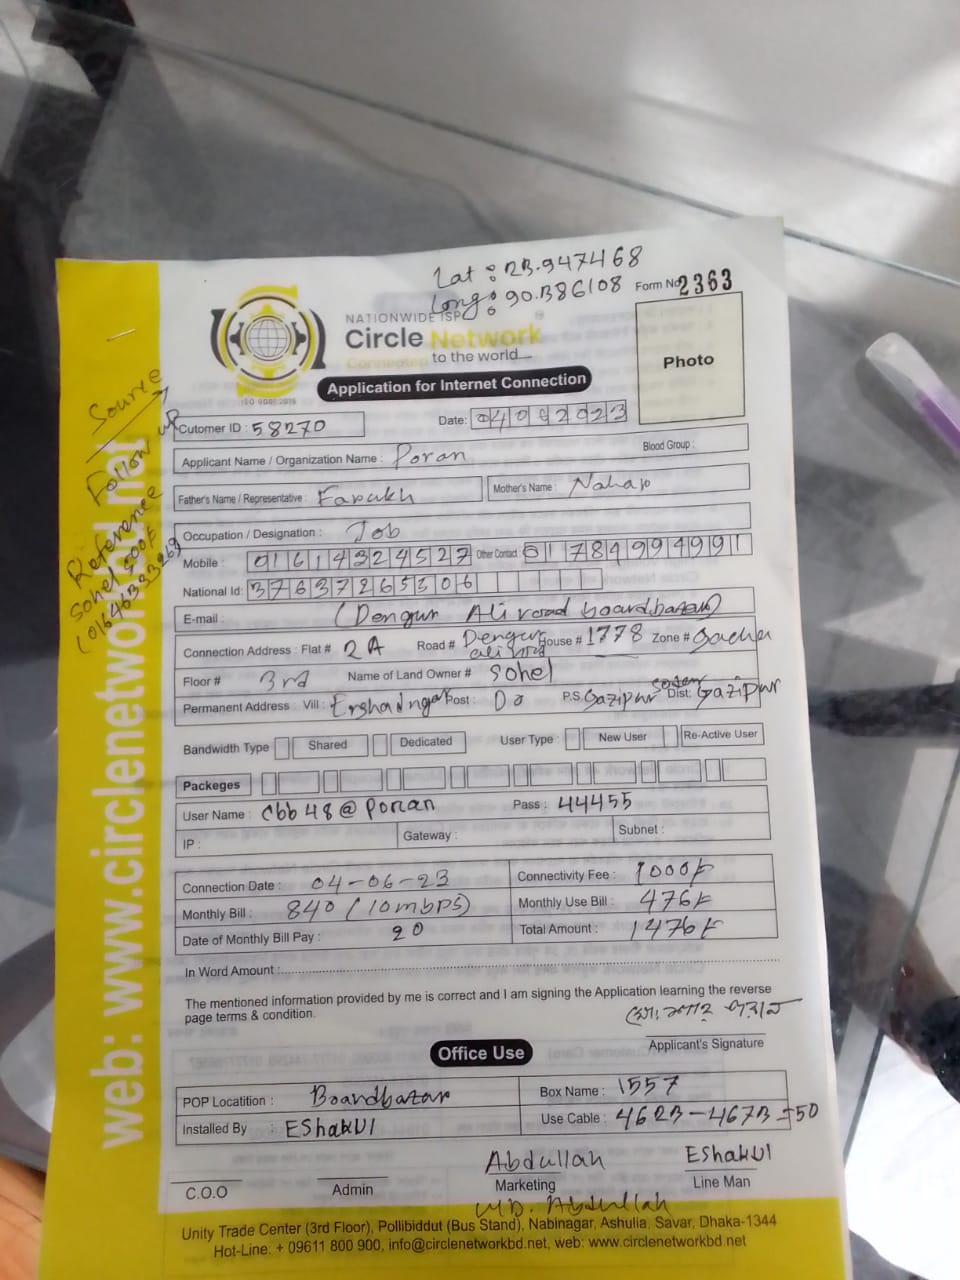 Lat : 23.947468
Long : 90.386108
Form No 2363
NATIONWIDE ISP
Circle Network
Connected to the world
ISO 9001:2015
Photo
Application for Internet Connection
Cutomer ID : 58270
Date: 04092023
Applicant Name / Organization Name : Poran
Blood Group :
Father's Name / Representative : Farukh
Mother's Name : Nahar
Occupation / Designation : Job
Mobile : 01614324527 Other Contact : 01784994991
National Id: 3763726530​6
E-mail :
(Dengur Ali road boardbazar)
Connection Address : Flat # 2A Road # Dengur ali road House # 1778 Zone # Gacha
Floor # 3rd Name of Land Owner # Sohel
Permanent Address : Vill : Ershadngar Post : Do P.S. Gazipur Dist: Gazipur
Bandwidth Type Shared Dedicated User Type : New User Re-Active User
Packeges
User Name : cbb48@Poran Pass : 44455
IP : Gateway : Subnet :
Connection Date : 04-06-23 Connectivity Fee : 1000/-
Monthly Bill : 840 (10mbps) Monthly Use Bill : 476/-
Date of Monthly Bill Pay : 20 Total Amount : 1476/-
In Word Amount :
The mentioned information provided by me is correct and I am signing the Application learning the reverse
page terms & condition.
Applicant's Signature
Office Use
POP Locatition : Boardbazar Box Name : 1557
Installed By : EShakUl Use Cable : 4623-4673=50
Abdullah EShakUl
C.O.O Admin Marketing Line Man
MD. Abdullah
Unity Trade Center (3rd Floor), Pollibiddut (Bus Stand), Nabinagar, Ashulia, Savar, Dhaka-1344
Hot-Line: + 09611 800 900, info@circlenetworkbd.net, web: www.circlenetworkbd.net
web: www.circlenetworkbd.net
Source
Follow up
Reference
Sohel